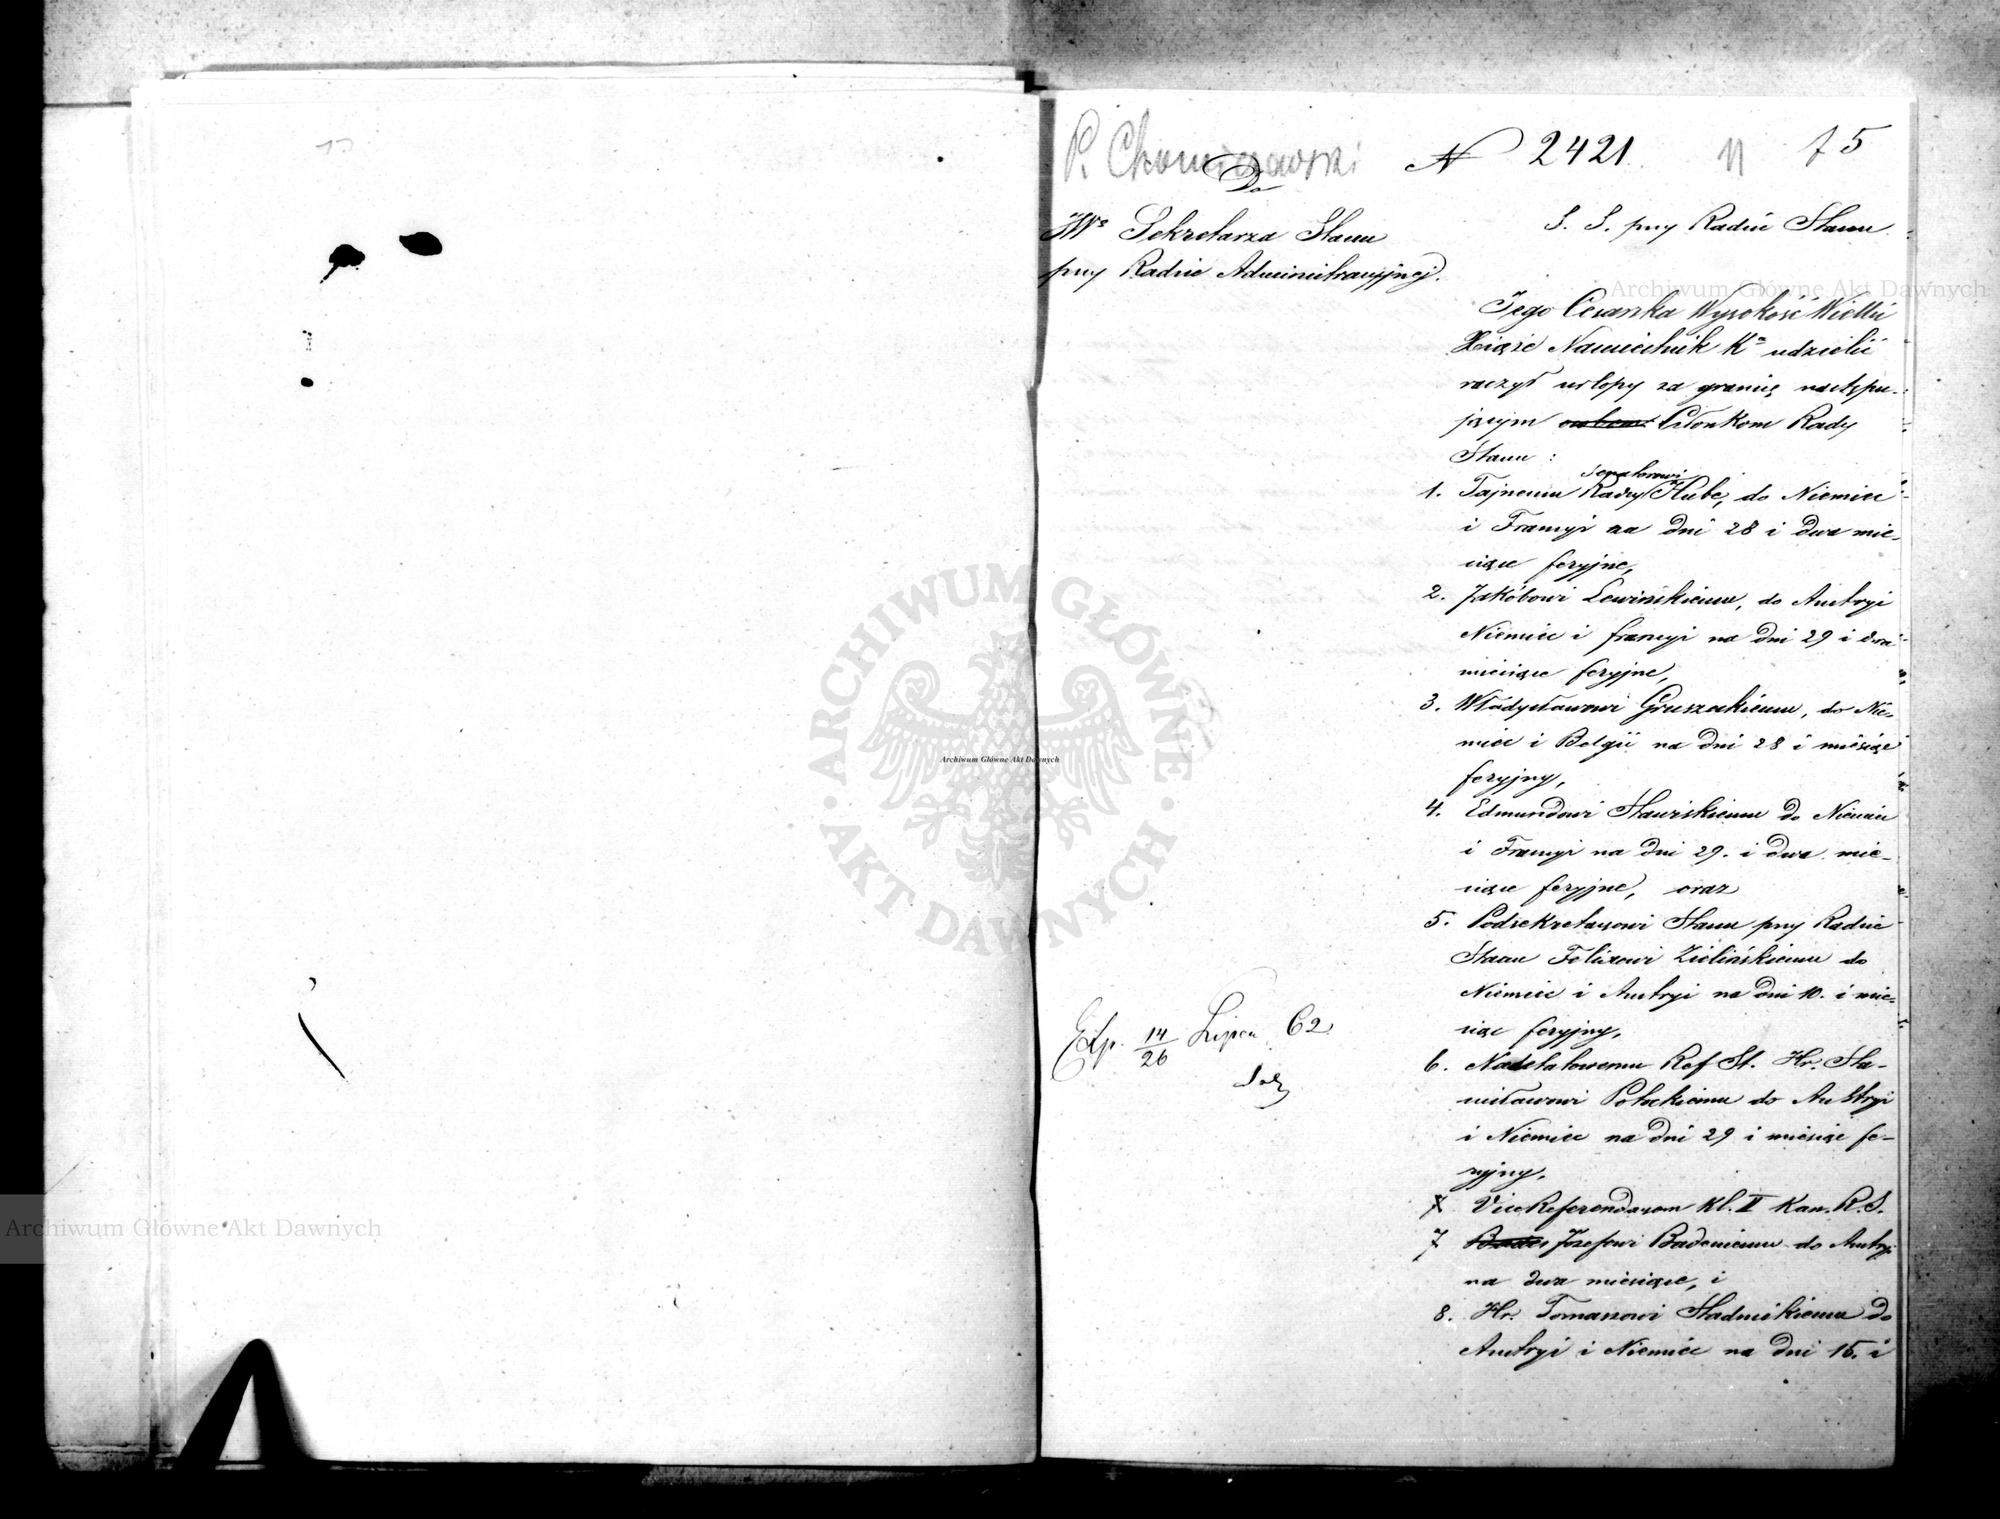 P. Chomiczewski
N 2421.
75
Do
JWo Sekretarza Stanu
przy Radzie Administracyjnej.
S. S. przy Radzie Stanu
Jego Cesarska Wysokość Wielki
Xiąże Namiestnik Ka udzielić
raczył urlopy za granicę następu-
jącym Członkom Rady
Stanu :
senatorowi
1. Tajnemu Radcy Hube, do Niemiec
i Francyi na dni 28 i dwa mie-
siące feryjne,
2. Jakóbowi Lewińskiemu, do Austryi
Niemiec i francyi na dni 29 i dwa
miesiące feryjne,
3. Władysławowi Gruszeckiemu, do Nie-
miec i Belgii na dni 28 i miesiąc
feryjny,
4. Edmundowi Stawiskiemu do Niemiec
i Francyi na dni 29. i dwa mie-
siące feryjne, oraz
5. Podsekretarzowi Stanu przy Radzie
Stanu Felixowi Zielińskiemu do
Niemiec i Austryi na dni 10. i mie-
siąc feryjny,
6. Nadetatowemu Ref St. Hr. Sta-
nisławowi Potockiemu do Austryi
i Niemiec na dni 29 i miesiąc fe-
ryjny,
Vice Referendarzom kl. II Kan. R. S.
7 Józefowi Badeniemu do Austryi
na dwa miesiące, i
8. Hr. Tomaszowi Stadnickiemu do
Austryi i Niemiec na dni 15. i
Exp. 14/26 Lipca 62
Archiwum Główne Akt Dawnych
Archiwum Główne Akt Dawnych
Archiwum Główne Akt Dawnych
ARCHIWUM GŁÓWNE · AKT DAWNYCH ·